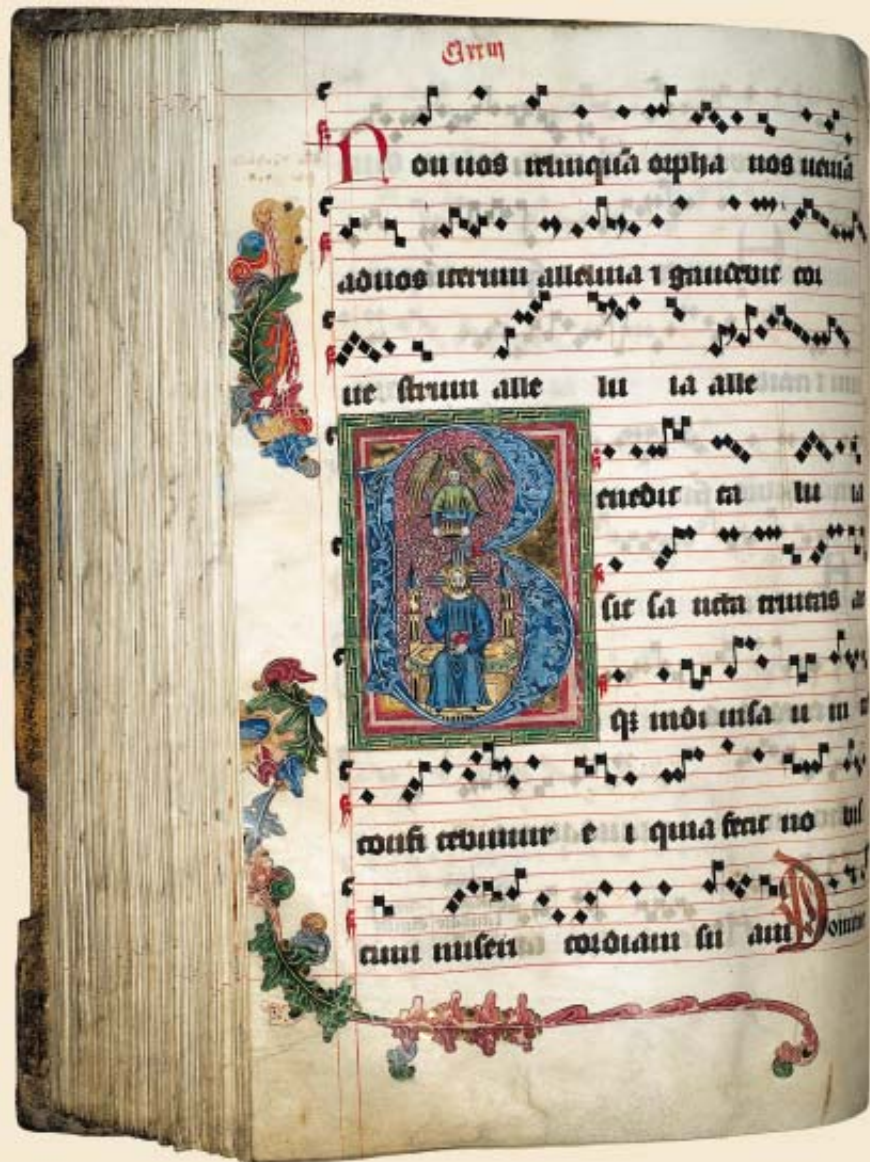 Non uos relinquā orpha nos ueniā
ad uos iterum alleluia ⁊ gaudebit cor
ue strum alle lu ia alle
Benedic ta
sit sa ncta trinitas
qꝫ indi uisa u ni
confi tebimur e i quia fecit no bis
cum miseri cordiam su am